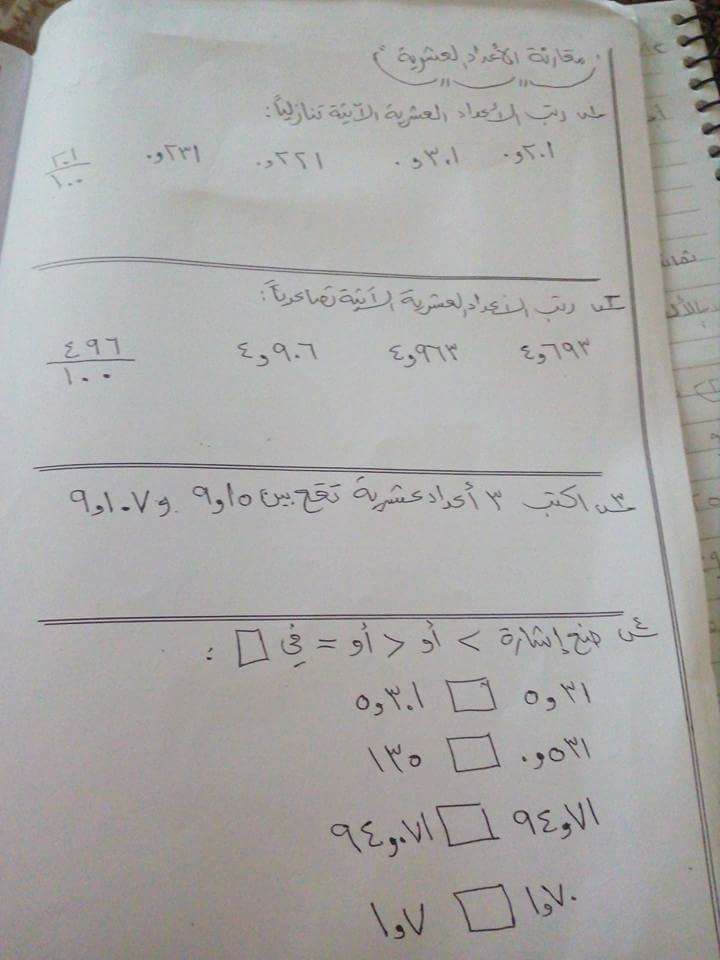 مقارنة الأعداد العشرية
س١ رتب الأعداد العشرية الآتية تنازلياً:
٢٠١و٠ ٣٠١و٠ ٢٢١و٠ ٢٣١و٠ ٢٠١/١٠٠
س٢ رتب الأعداد العشرية الآتية تصاعدياً:
٦٩٣و٤ ٩٦٣و٤ ٩٠٦و٤ ٤٩٦/١٠٠
س٣ اكتب ٣ أعداد عشرية تقع بين ١٥و٩ و ١٠٧و٩
س٤ ضع إشارة > أو < أو = في □ :
٣١و٥ □ ٣٠١و٥
٥٣١و٠ □ ١٣٥
٧١و٩٤ □ ٠٧١و٩٤
٧٠و١ □ ٧و١